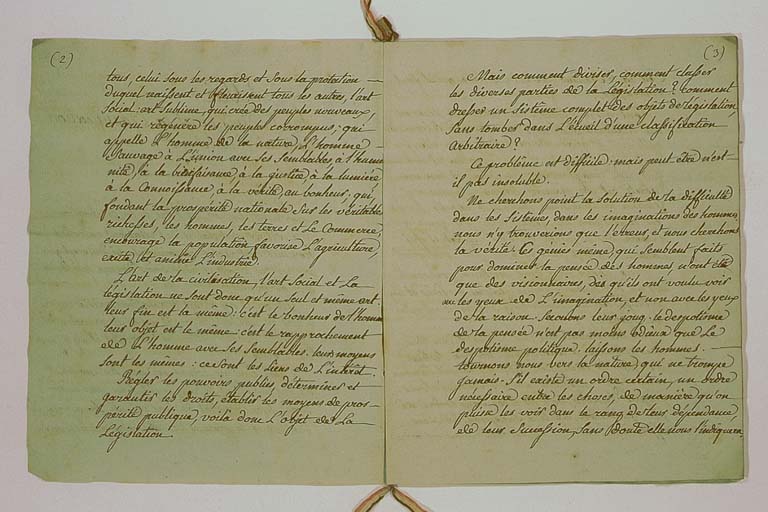 (2)
tous, celui sous les regards et sous la protection
duquel naissent et fleurissent tous les autres, l'art
social: art sublime, qui crée des peuples nouveaux,
et qui régénère les peuples corrompus; qui
appelle l'homme de la nature, l'homme
sauvage à l'union avec ses semblables, à l'huma-
nité, à la bienfaisance, à la justice, à la lumière
à la connoissance, à la vérité, au bonheur; qui,
fondant la prospérité nationale sur les véritables
richesses, les hommes, les terres et le commerce,
encourage la population, favorise l'agriculture,
excite et anime l'industrie.
L'art de la civilisation, l'art social et la
législation ne sont donc qu'un seul et même art.
leur fin est la même: c'est le bonheur de l'homme
leur objet est le même: c'est le rapprochement
de l'homme avec ses semblables. leurs moyens
sont les mêmes: ce sont les liens de l'intérêt.
Régler les pouvoirs publics, déterminer et
garantir les droits, établir les moyens de pros-
périté publique, voilà donc l'objet de la
législation.
(3)
Mais comment diviser, comment classer
les diverses parties de la législation? comment
dresser un sistême complet des objets de législation,
sans tomber dans l'écueil d'une classification
arbitraire?
Ce problême est difficile: mais peut être n'est-
il pas insoluble.
Ne cherchons point la solution de la difficulté
dans les sistêmes, dans les imaginations des hommes
nous n'y trouverions que l'erreur, et nous cherchons
la vérité. Les génies même, qui semblent faits
pour dominer la pensée des hommes n'ont été
que des visionnaires, dès qu'ils ont voulu voir
les yeux de l'imagination, et non avec les yeux
de la raison. Secouons leur joug. le despotisme
de la pensée n'est pas moins odieux que le
despotisme politique. laissons les hommes.
tournons nous vers la nature, qui ne trompe
jamais. S'il existe un ordre certain, un ordre
nécessaire entre les choses, de manière qu'on
puisse les voir dans le rang de leur dépendance,
de leur succession, sans doute elle nous l'indiquera.